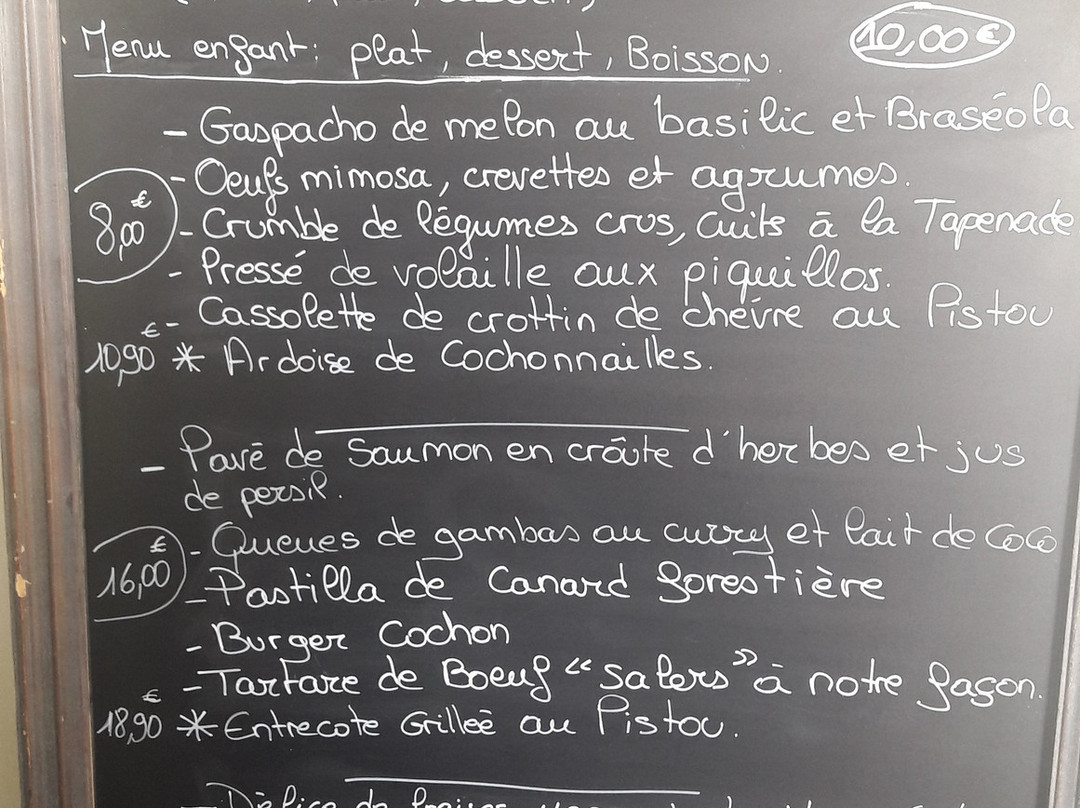 Menu enfant: plat, dessert, Boisson. 10,00 €
- Gaspacho de melon au basilic et Braséola
- Oeufs mimosa, crevettes et agrumes.
8,00 €
- Crumble de légumes crus, cuits à la Tapenade
- Pressé de volaille aux piquillos.
- Cassolette de crottin de chévre au Pistou
10,90 € * Ardoise de Cochonnailles.
- Pavé de Saumon en croûte d'herbes et jus
de persil.
- Queues de gambas au curry et lait de Coco
16,00 €
- Pastilla de Canard forestière
- Burger Cochon
- Tartare de Boeuf "Salers" à notre façon.
18,90 € * Entrecote Grilleé au Pistou.
- Délice de fraises